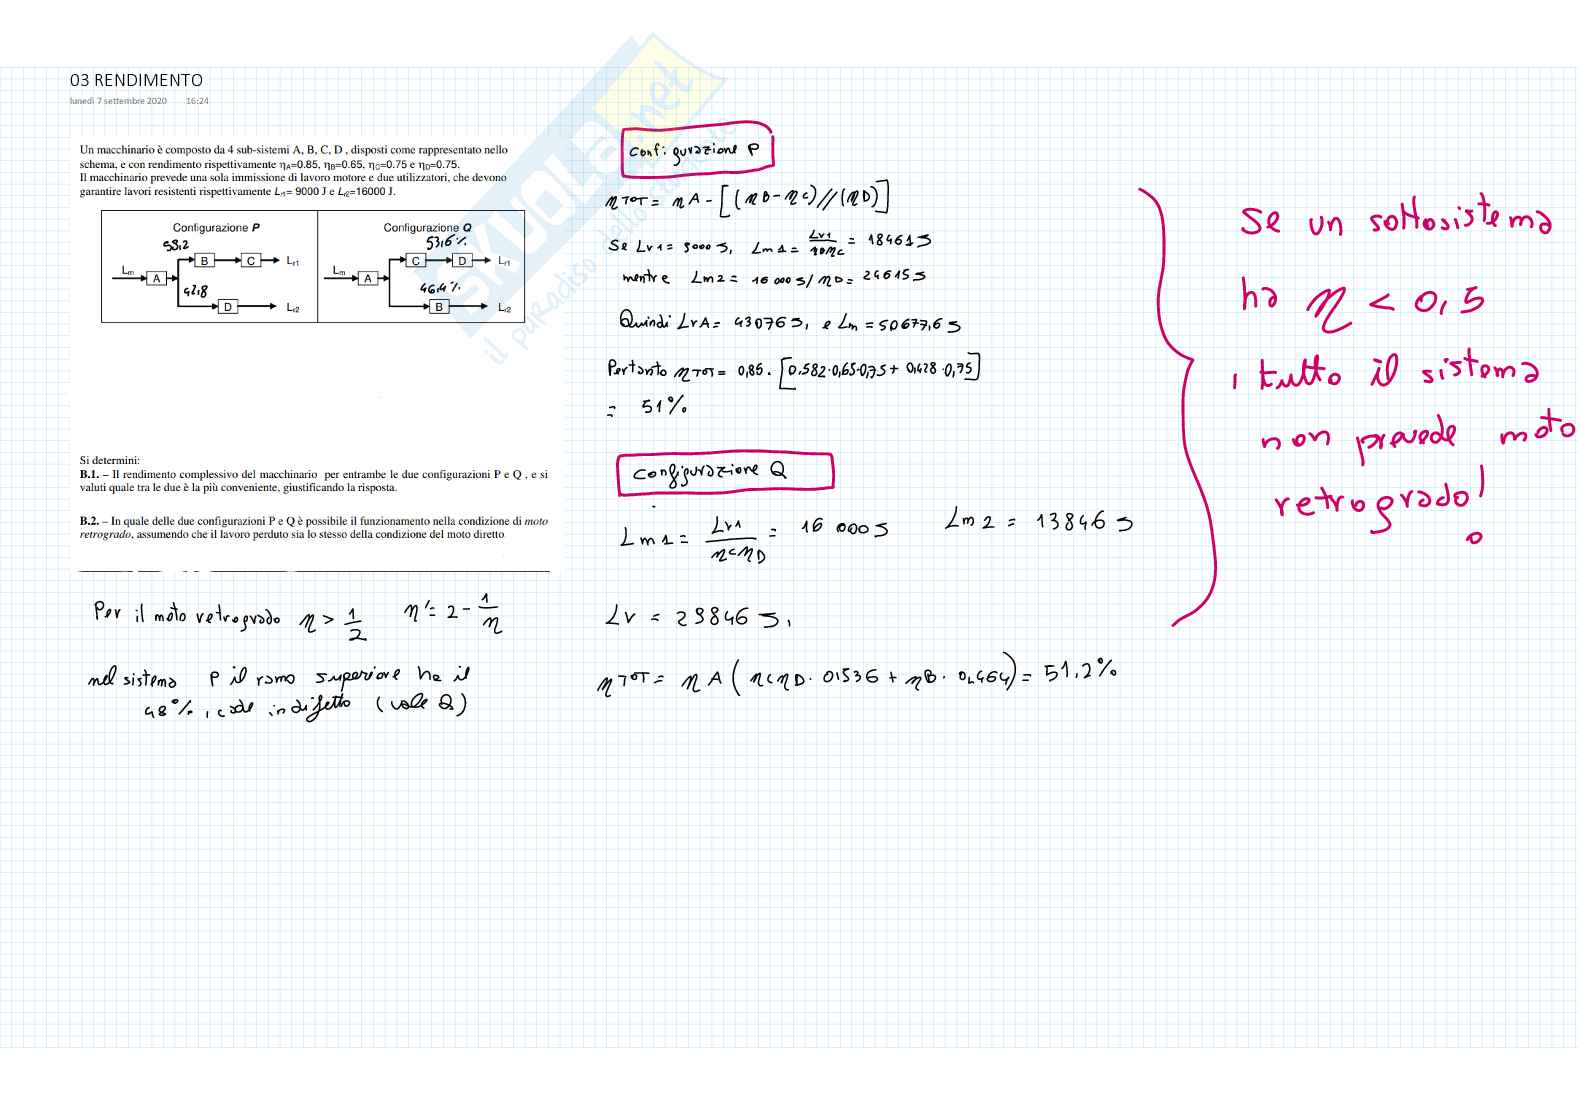 03 RENDIMENTO
lunedì 7 settembre 2020 16:24
Un macchinario è composto da 4 sub-sistemi A, B, C, D , disposti come rappresentato nello
schema, e con rendimento rispettivamente ηA=0.85, ηB=0.65, ηC=0.75 e ηD=0.75.
Il macchinario prevede una sola immissione di lavoro motore e due utilizzatori, che devono
garantire lavori resistenti rispettivamente Lr1= 9000 J e Lr2=16000 J.
Configurazione P
58,2
Lm A B C Lr1
42,8
D Lr2
Configurazione Q
53,6%
Lm A C D Lr1
46,4%
B Lr2
Si determini:
B.1. – Il rendimento complessivo del macchinario per entrambe le due configurazioni P e Q , e si
valuti quale tra le due è la più conveniente, giustificando la risposta.
B.2. – In quale delle due configurazioni P e Q è possibile il funzionamento nella condizione di moto
retrogrado, assumendo che il lavoro perduto sia lo stesso della condizione del moto diretto
Per il moto retrogrado η > 1/2 η' = 2 - 1/η
nel sistema P il ramo superiore ha il
48%, cade in difetto (vale Q)
Configurazione P
ηTOT = ηA - [(ηB - ηC) // (ηD)]
Se Lr1 = 9000 J, Lm1 = Lr1/ηBηC = 18461 J
mentre Lm2 = 16 000 J / ηD = 24615 J
Quindi LrA = 43076 J, e Lm = 50677,6 J
Pertanto ηTOT = 0,85 · [0.582·0,65·0,75 + 0,428·0,75]
= 51%
Configurazione Q
Lm1 = Lr1/ηCηD = 16 000 J Lm2 = 13846 J
Lr = 29846 J,
ηTOT = ηA (ηCηD · 0,536 + ηB · 0,464) = 51,2%
Se un sottosistema
ha η < 0,5
, tutto il sistema
non prevede moto
retrogrado!
SKUOLA.net
il paradiso dello studente